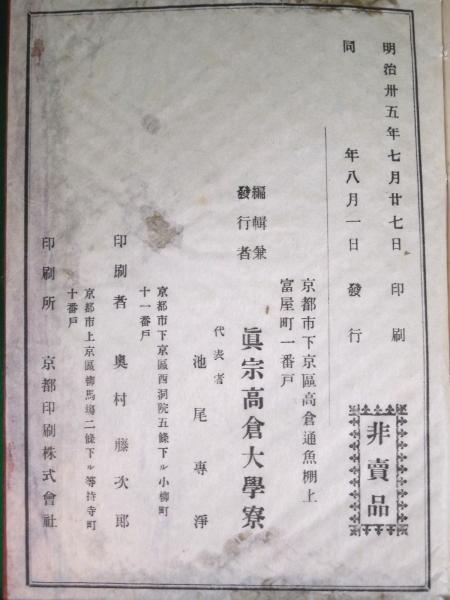 明治卅五年七月廿七日印刷
同年八月一日發行
非賣品
京都市下京區高倉通魚棚上
富屋町一番戸
編輯兼
發行者
眞宗高倉大學寮
代表者
池尾專淨
京都市下京區西洞院五條下ル小柳町
十一番戸
印刷者 奥村藤次郎
京都市上京區柳馬場二條下ル等持寺町
十番戸
印刷所 京都印刷株式會社